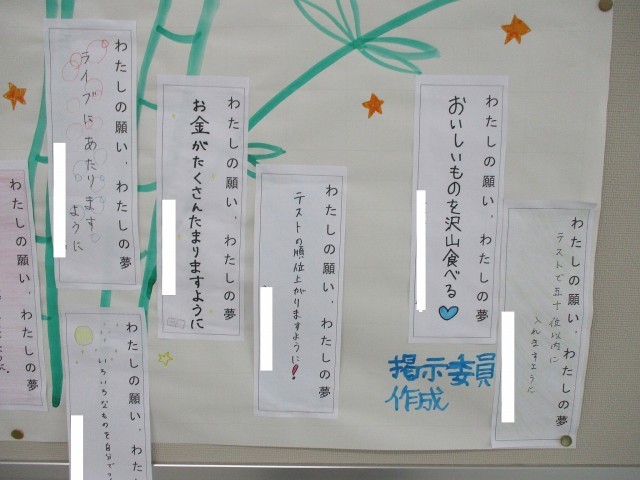 わたしの願い、わたしの夢
おいしいものを沢山食べる
わたしの願い、わたしの夢
テストで五十位以内に
入れますように
わたしの願い、わたしの夢
テストの順位上がりますように!
わたしの願い、わたしの夢
お金がたくさんたまりますように
わたしの願い、わたしの夢
ライブにあたります
ように
わたしの願い、わたしの夢
いろいろなものを自分で
わたしの願い、わたしの夢
掲示委員
作成